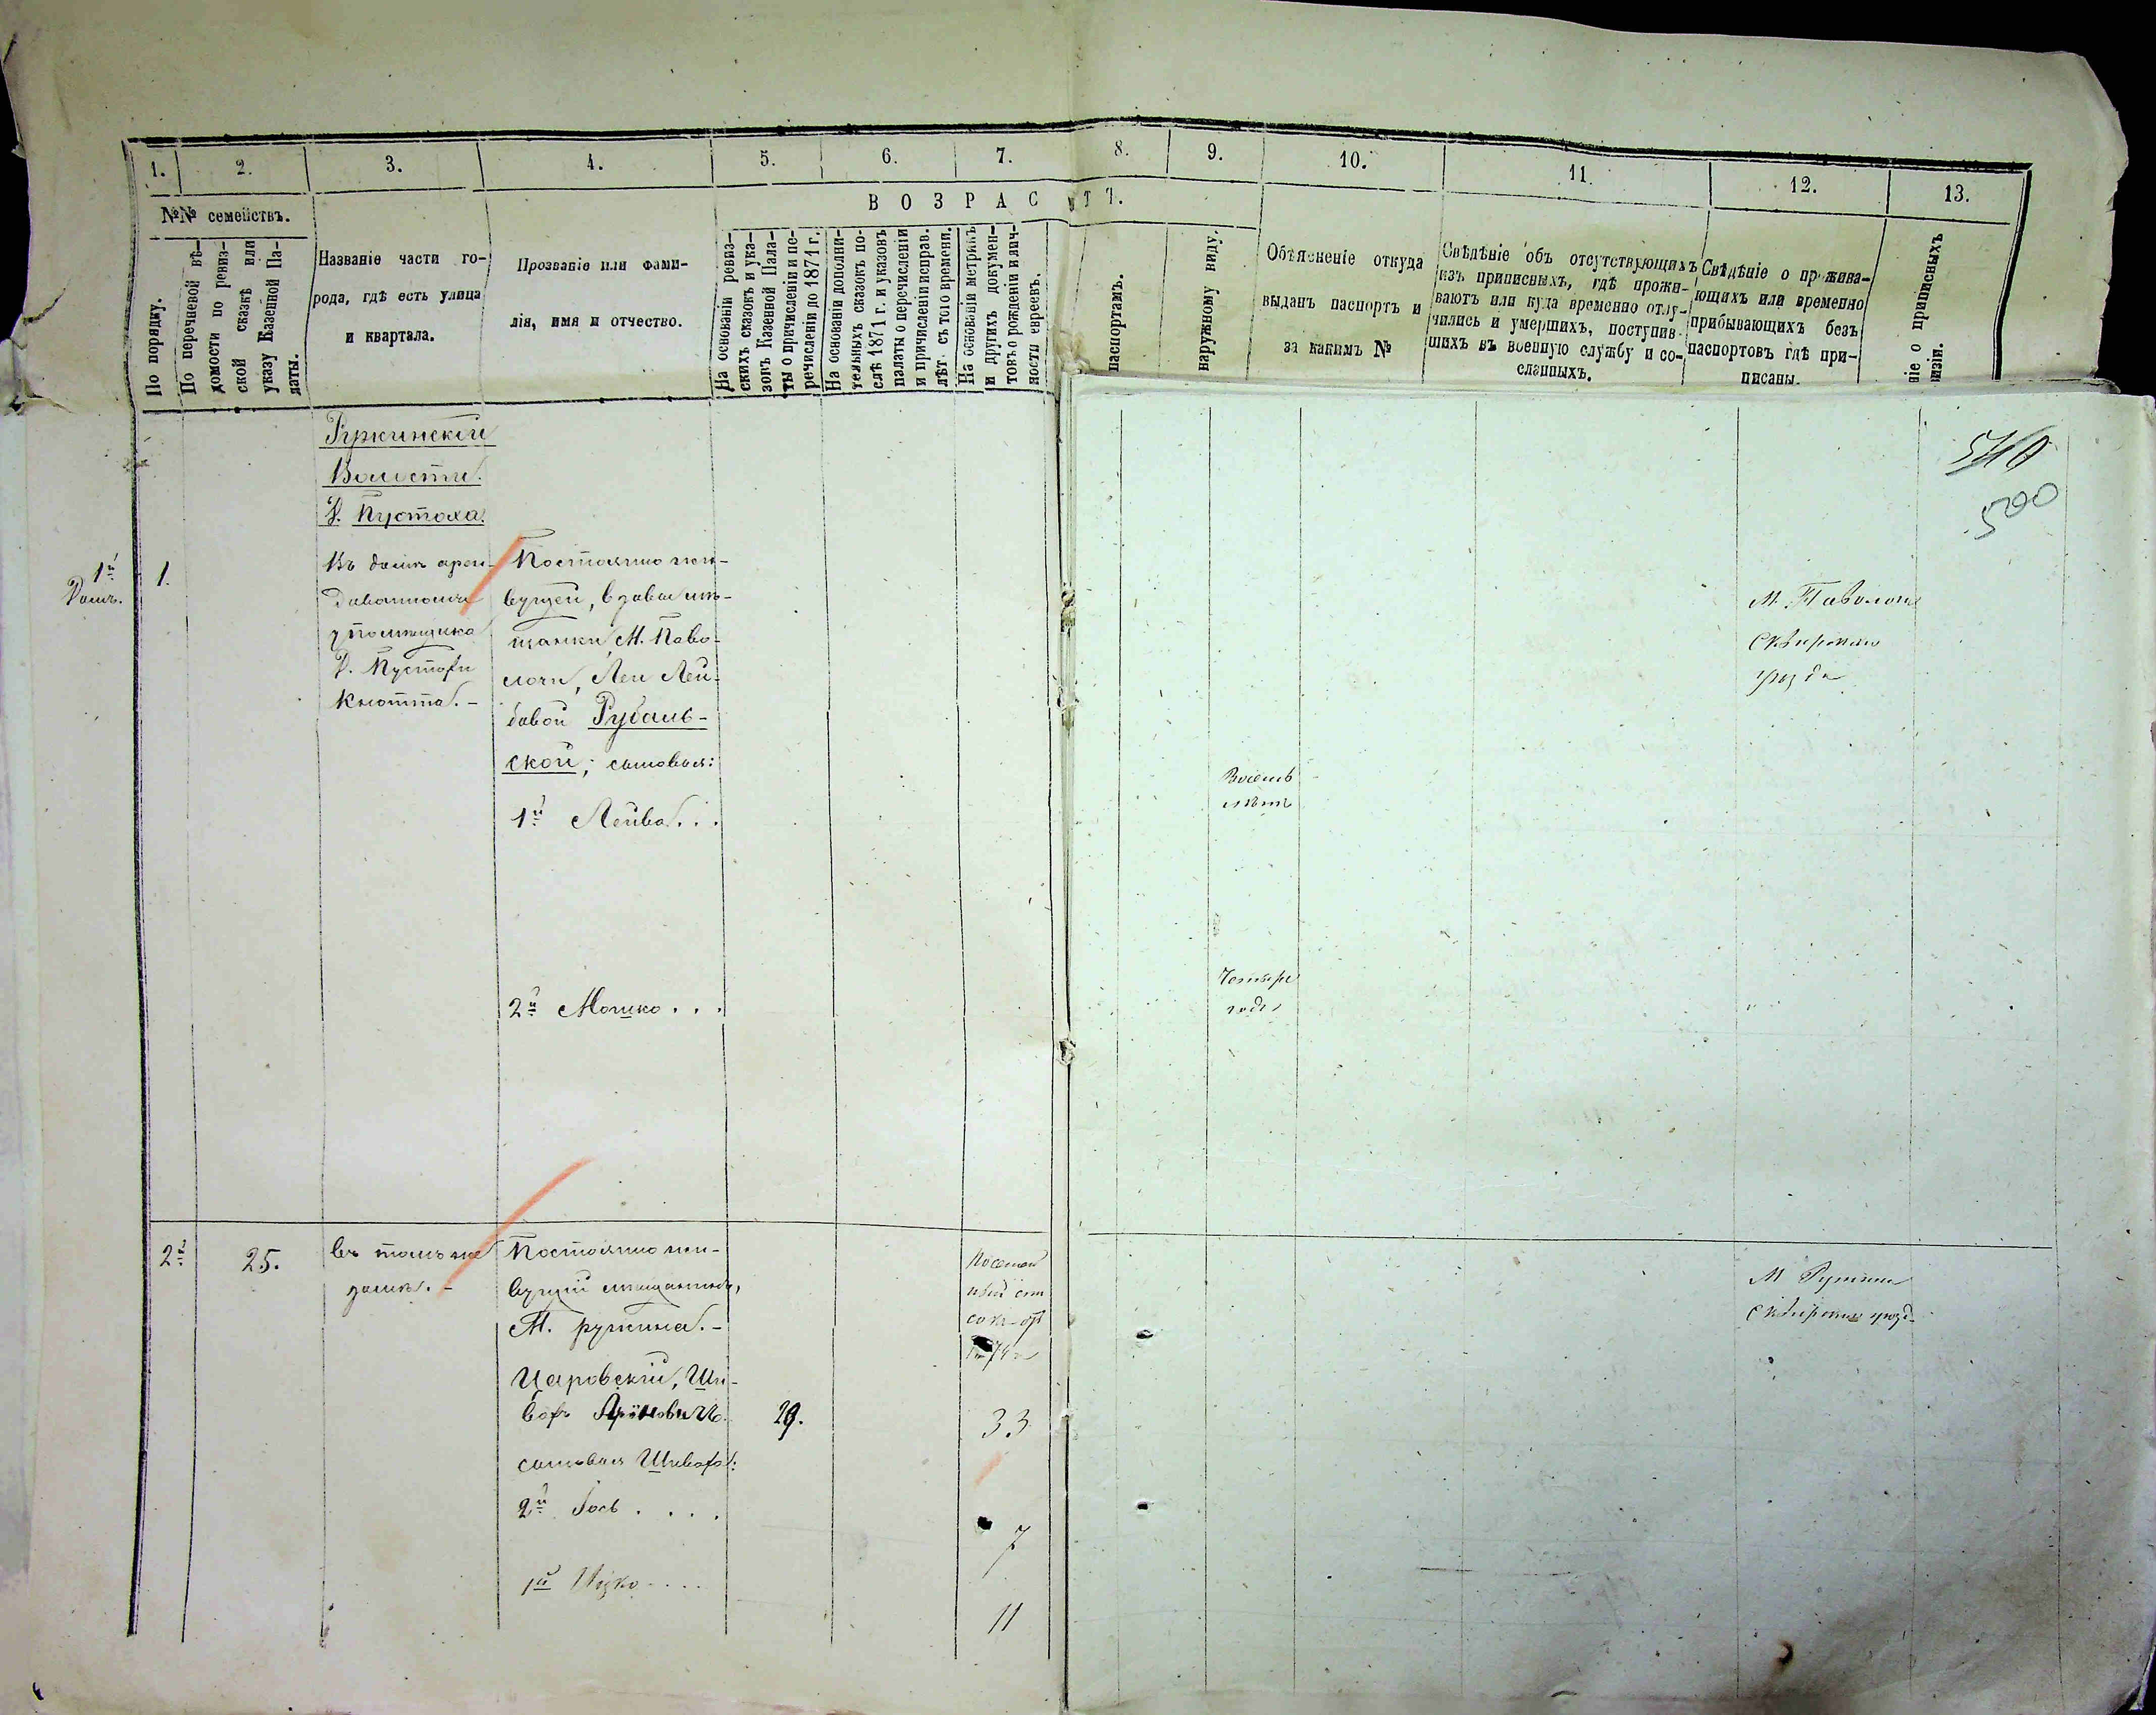 1. 2. 3. 4. 5. 6. 7. 8. 9. 10. 11. 12. 13.
№№ семействъ.
По порядку.
По перечневой вѣ-
домости по ревиз-
ской сказкѣ или
указу Казенной Па-
латы.
Названіе части го-
рода, гдѣ есть улица
и квартала.
Прозваніе или фами-
лія, имя и отчество.
ВОЗРАСТЪ.
На основаніи ревиз-
скихъ сказокъ и ука-
зовъ Казенной Пала-
ты о причисленіи и пе-
речисленіи до 1871 г.
На основаніи дополни-
тельныхъ сказокъ по-
слѣ 1871 г. и указовъ
палаты о перечисленіи
и причисленіи исправ.
лѣт. съ того времени.
На основаніи метрикъ
и другихъ докумен-
товъ о рожденіи и лич-
ности евреевъ.
паспортамъ.
наружному виду.
Объясненіе откуда
выданъ паспортъ и
за какимъ №
Свѣдѣніе объ отсутствующихъ
изъ приписныхъ, гдѣ прожи-
ваютъ или куда временно отлу-
чились и умершихъ, поступив-
шихъ въ военную службу и со-
сланныхъ.
Свѣдѣніе о прожива-
ющихъ или временно
прибывающихъ безъ
паспортовъ гдѣ при-
писаны.
ніе о приписныхъ
визіи.
540
500
Волости.
Д. Пустоха.
1й
Домъ.
1.
Въ домѣ арен-
Д. Пустохи
Постоянно жи-
вущей, вдовы мѣ-
щанки М. Паво-
лочи, Леи Лей-
бовой Рубаль-
ской; сыновья:
1й Лейба...
М. Паволочи
Сквирскаго
уѣзда
Восемь
лѣтъ
2й Мошко...
Четыре
года
2й
25.
въ томъ же
домѣ. -
Постоянно жи-
вущій мѣщанинъ,
М. Ружина. -
29.
33
сыновья
2й Іось....
7
1й Ицко....
11
М. Ружина
Сквирскаго уѣзд.